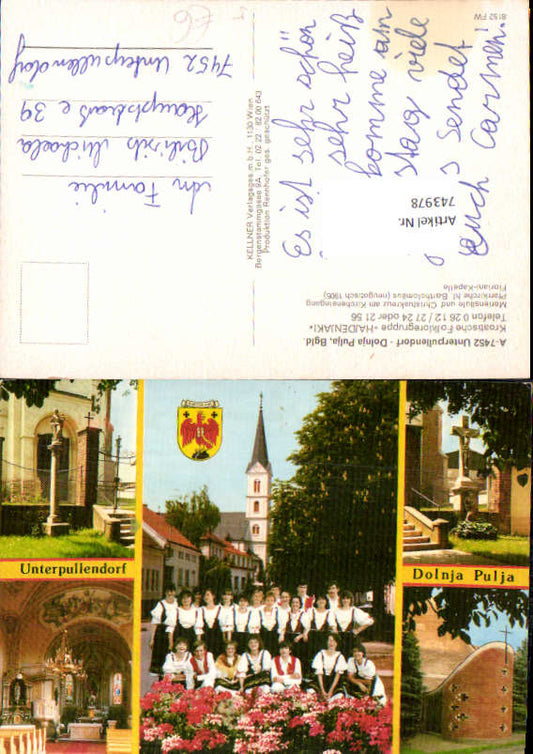 A-7452 Unterpullendorf - Dolnja Pulja, Bgld.
Kroatische Folkloregruppe »HAJDENJAKI«
Telefon 0 26 12 / 27 24 oder 21 56
Pfarrkirche hl. Bartholomäus (neugotisch 1905)
Mariensäule und Christuskreuz am Kircheneingang
Florian-Kapelle
Artikel Nr.
743978
Es ist sehr schön
sehr heiß
komme am
stag viele
s sendet
Euch Carmen!
8152 FW
KELLNER Verlagsges.m.b.H., 1130 Wien
Bergenstammgasse 9A, Tel. 02 22 / 82 00 643
Produktion Rennhofer ges. geschützt
An Familie
Michaela
Hauptstraße 39
7452 Unterpullendorf
Unterpullendorf
Dolnja Pulja